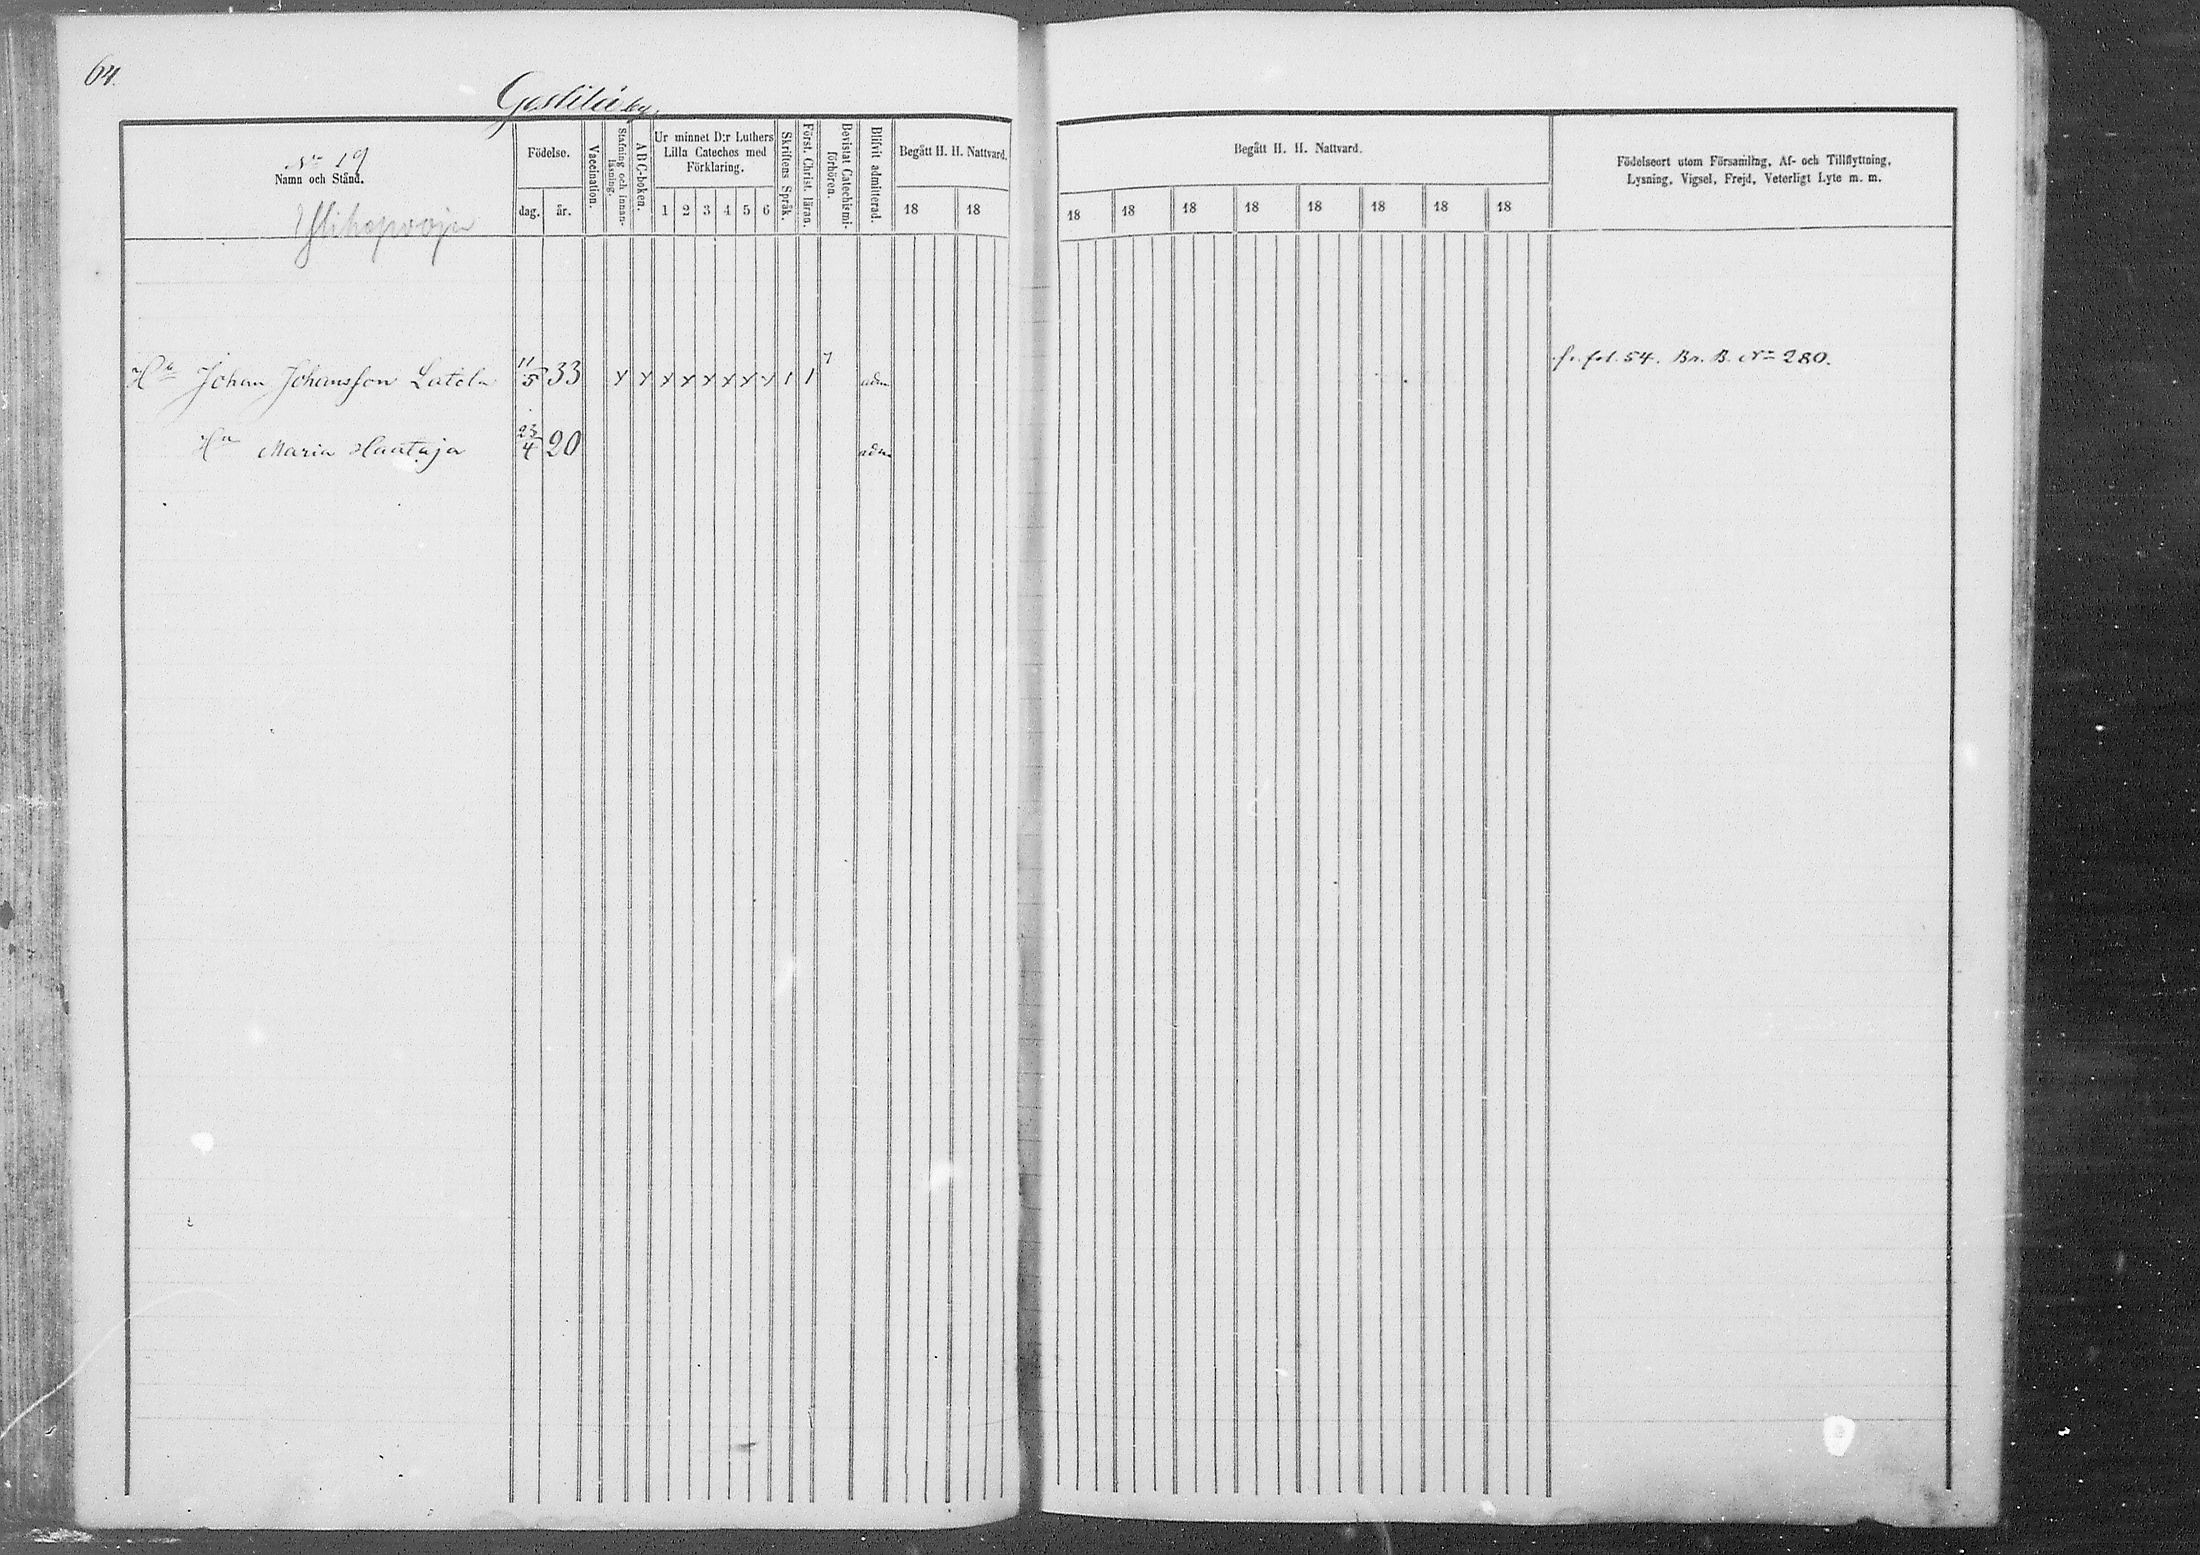 64.
by.
No 19
Namn och Stånd.
Födelse.
dag. år.
Vaccination.
Stafning och innan-läsning.
ABC-boken.
Ur minnet D:r Luthers Lilla Cateches med Förklaring.
1 2 3 4 5 6
Skriftens Språk.
Först. Christ. läran.
Bevistat Catechismi-förhören.
Blifvit admitterad.
Begått H. H. Nattvard.
18 18
Begått H. H. Nattvard.
18 18 18 18 18 18 18 18
Födelseort utom Församling, Af- och Tillflyttning,
Lysning, Vigsel, Frejd, Veterligt Lyte m. m.
Johan Johansson 11/5 33 x x x x x x x x 1 1 adm fr. fol. 54. Br. B. No 280.
Maria Haataja 23/4 20 adm